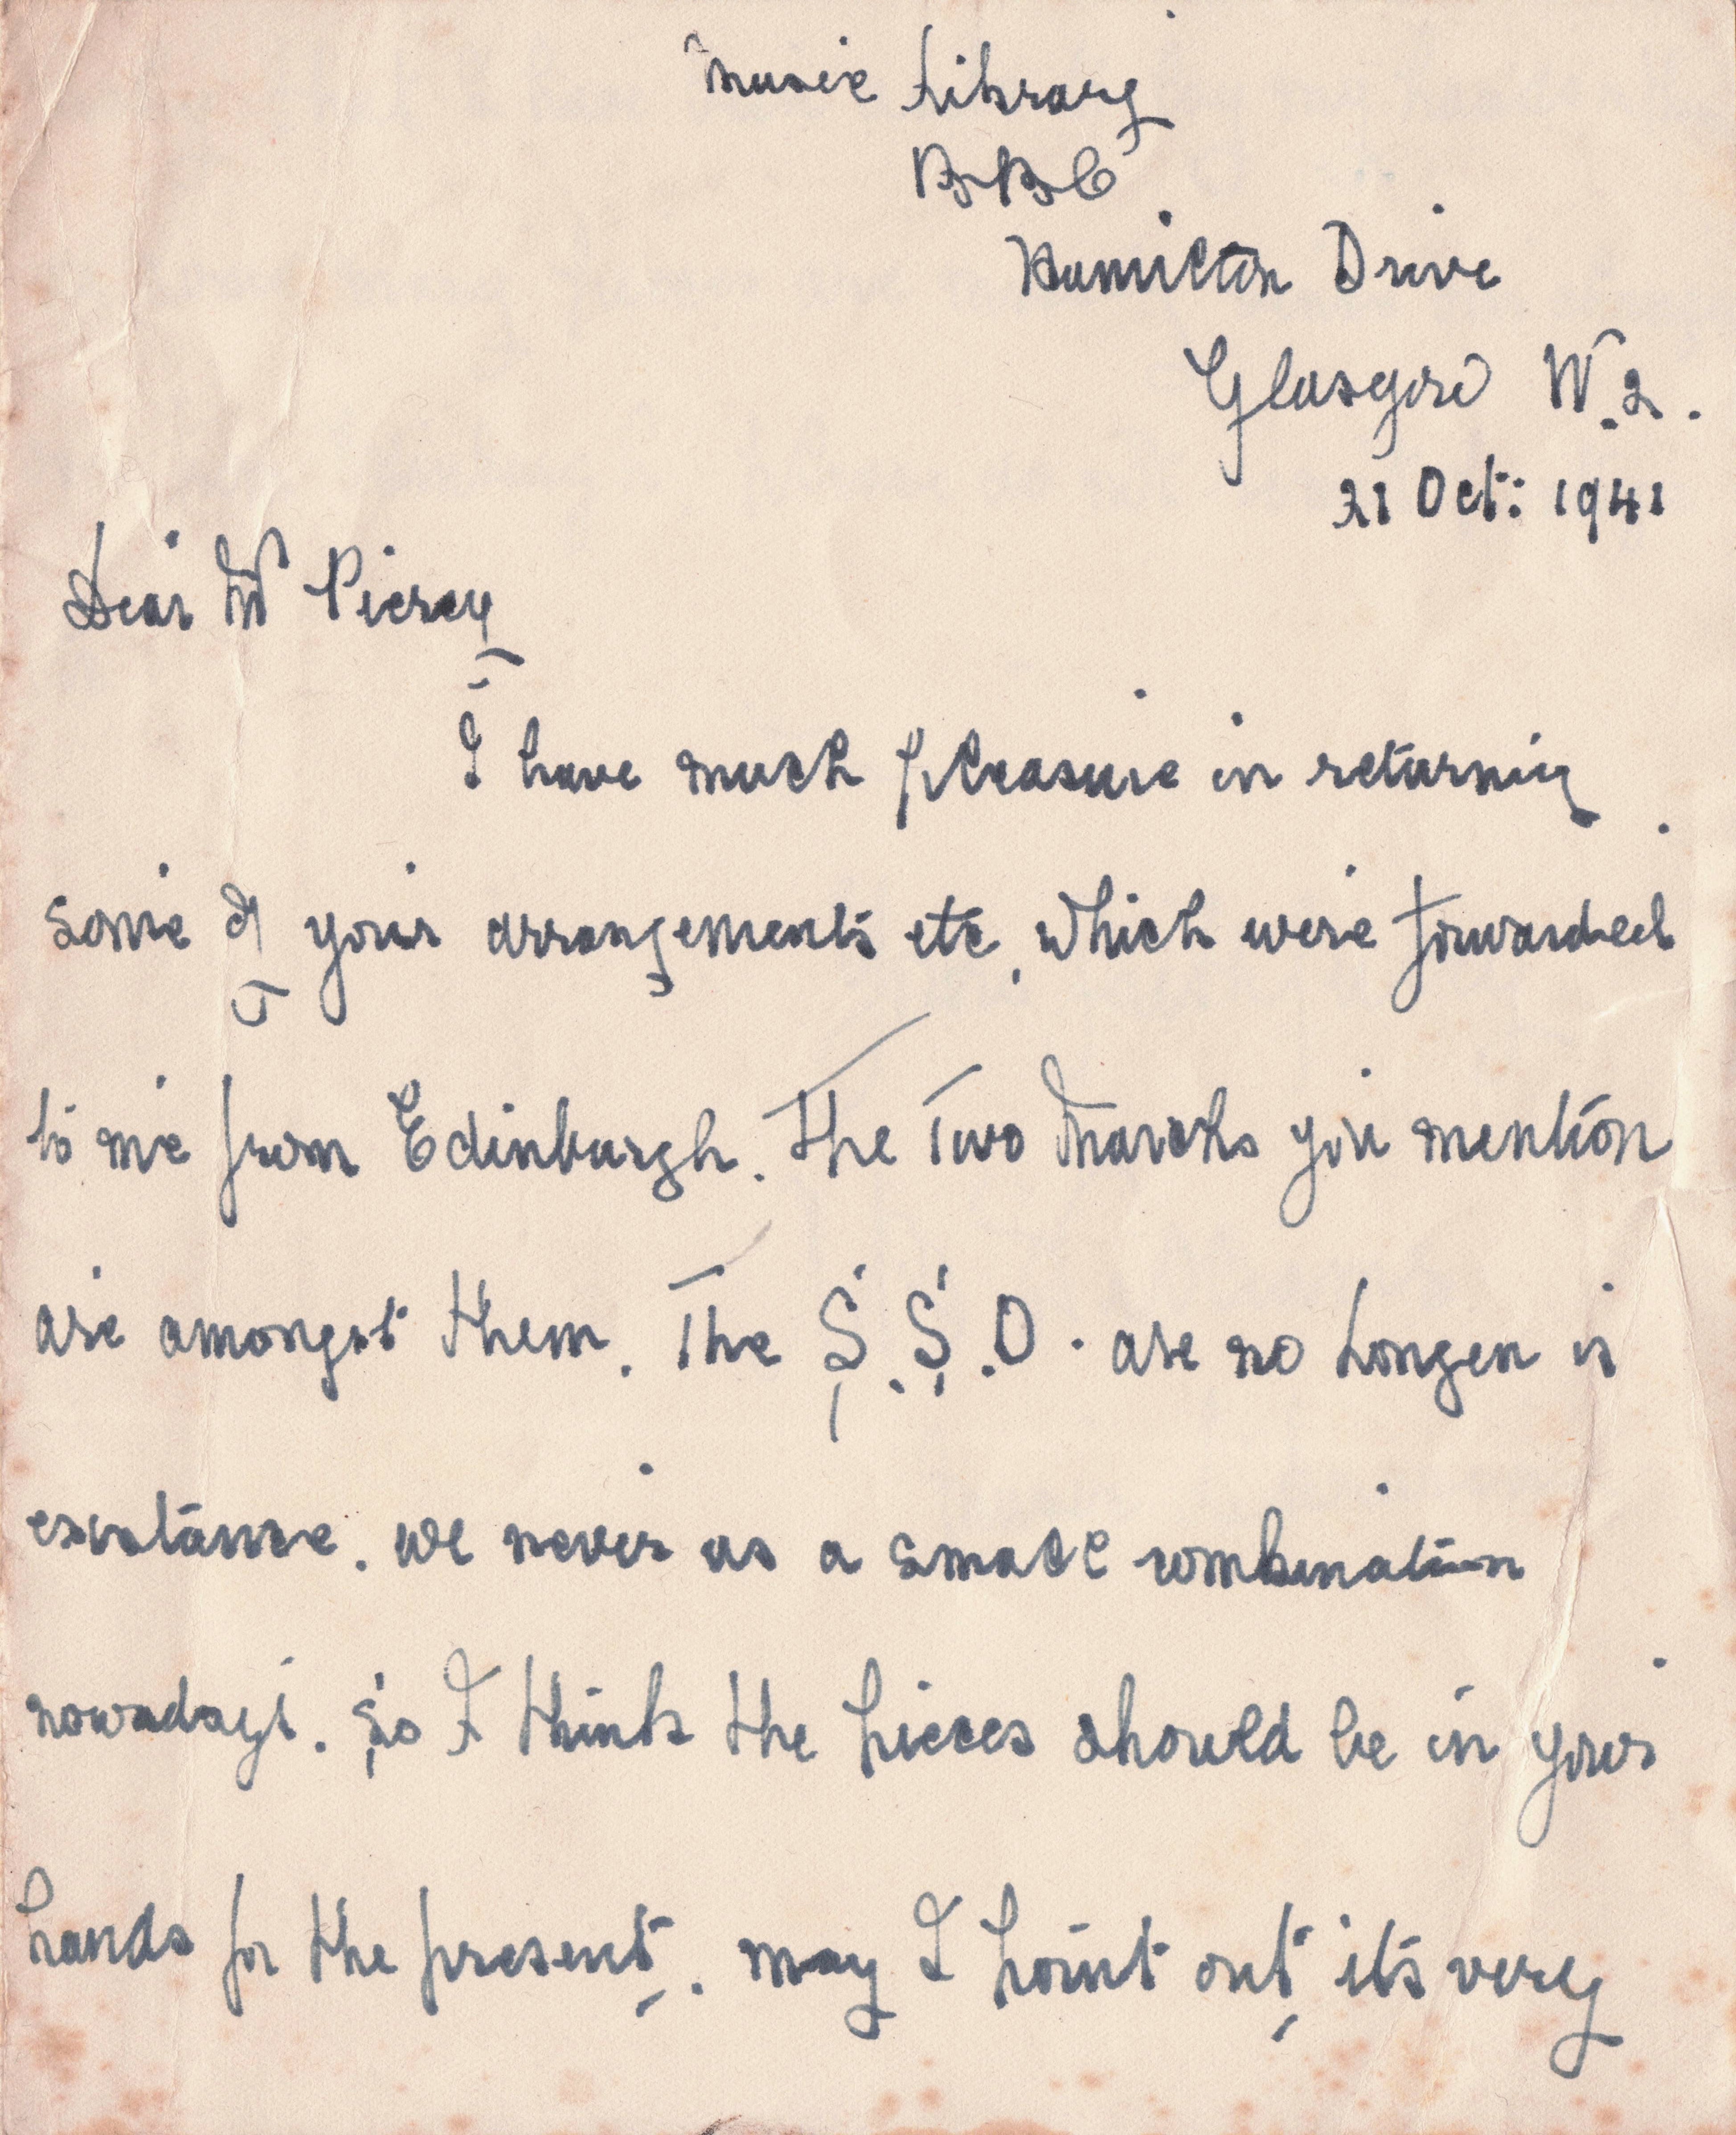 Music Library
BBC
Hamilton Drive
Glasgow W.2.
21 Oct: 1941
Dear Mr Piercy
I have much pleasure in returning
some of your arrangements etc, which were forwarded
to me from Edinburgh. The Two Marchs you mention
are amongst them. The S.S.O. are no longer in
existance. we never us a small combination
nowadays. So I think the pieces should be in your
hands for the present. may I point out, its very